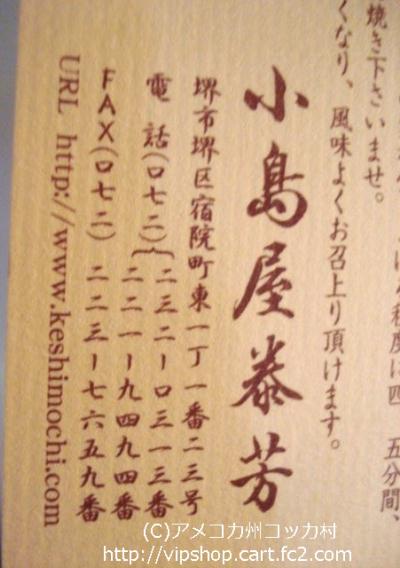 焼き下さいませ。
くなり、風味よくお召上り頂けます。
小島屋泰芳
堺市堺区宿院町東一丁一番二三号
電話(〇七二)二三二ー〇三一三番
二二一ー九四九四番
FAX(〇七二)二二三ー七六五九番
URL http://www.keshimochi.com
(C)アメコカ州コッカ村
http://vipshop.cart.fc2.com